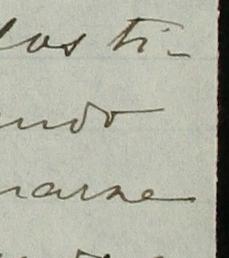 los ti-
ndo
narse